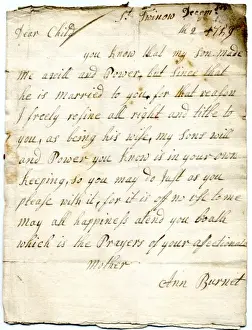 St. Twinow Decem:br
Dear Child the 2 1759
you know that my son made
me a will and Power, but since that
he is married to you, for that reason
I freely resine all right and title to
you, as being his wife, my sons will
and Power you know is in your own
keeping, so you may do Just as you
please with it, for it is of no use to me
may all happiness atend you both
which is the Prayers of your afectionate
Mother
Ann Burnet